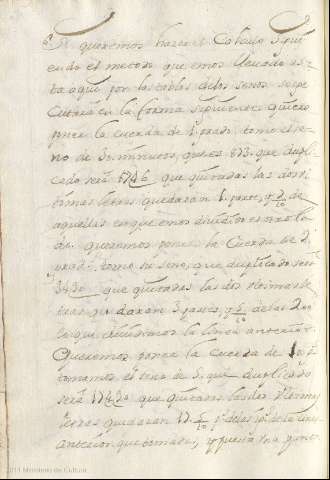 Si queremos hacer el Calculo Sigui
endo el metodo que emos lleuado as
ta aqui por las tablas delos senos se ege
Cutará en la forma siguiente: quiero
poner la cuerda de 1. grado, tomo el se
no de 30. minutos, que es 873. que dupli
cado será 1746 que quitadas las dos ul
timas letras quedarán 1. parte, y de
aquellas en que emos diuidido
queremos poner la Cuerda de 2.
grad. tomo su seno, que duplicado será
3490 que quitadas las dos ultimas le
tras quedaran 3. partes, y de las
en que diuidimos la linea anterior.
Queremos poner la Cuerda de 10 g.
tomamos el seno de 5. que duplicado
será 17430 que quitadas las dos ultimas
letras quedaran 17. de la linea
Anterior que tomada, y puesta
2011 Ministerio de Cultura